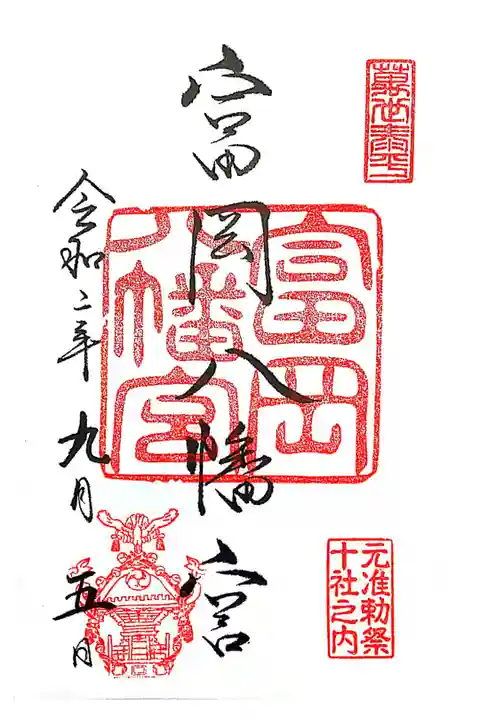 萬世泰平
富岡八幡宮
富岡
八幡宮
元准勅祭
十社之内
令和二年九月五日